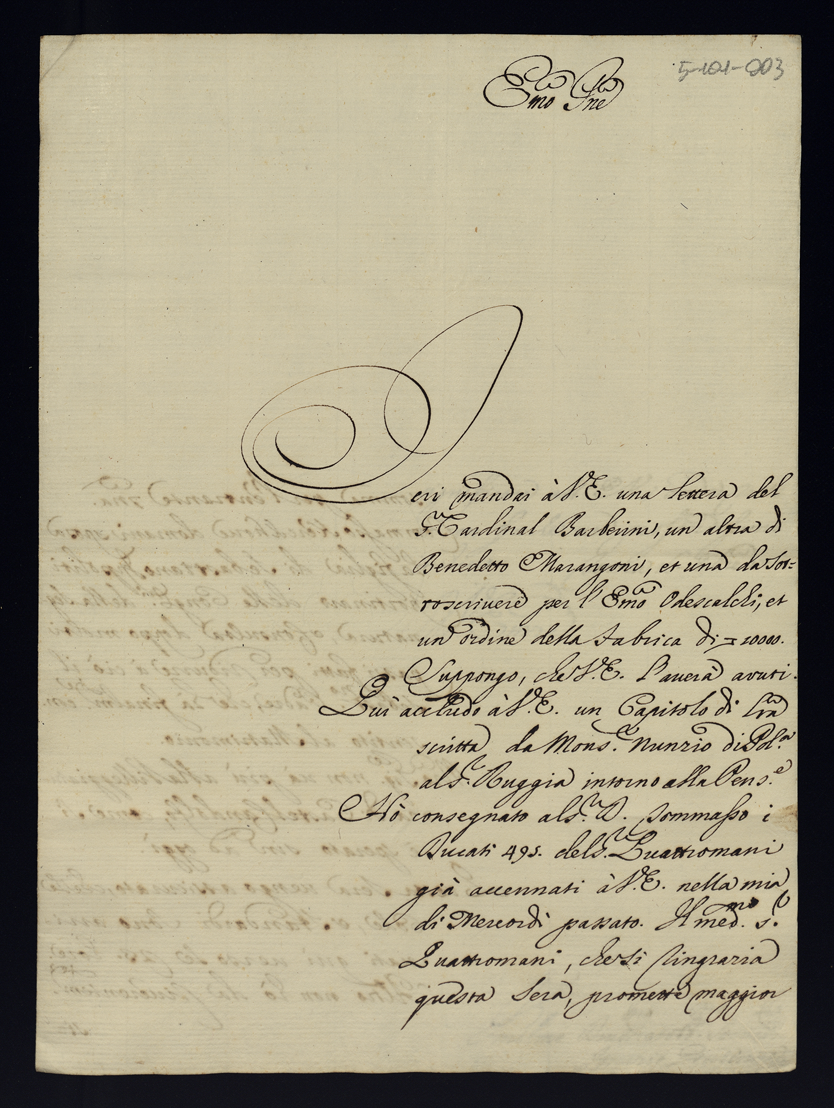 5-101-003
Emo Sne
Ieri mandai à V. E. una lettera del
S.r Cardinal Barberini, un altra di
Benedetto Marangoni, et una da Sot=
toscrivere per l'Emo Odescalchi, et
un ordine della fabrica di 10000.
Suppongo, che V. E. l'averà avuti.
Qui accludo à V. E. un Capitolo di lra
scritta da Mons.r Nunzio di Pol.a
al S.r Ruggia intorno alla Pens.e
Hò consegnato al S.r D. Tommasso i
Ducati 495. del S.r Quattromani
già accennati à V. E. nella mia
di Mercordì passato. Il med.mo S.r
Quattromani, che si ringrazia
questa sera, promette maggior